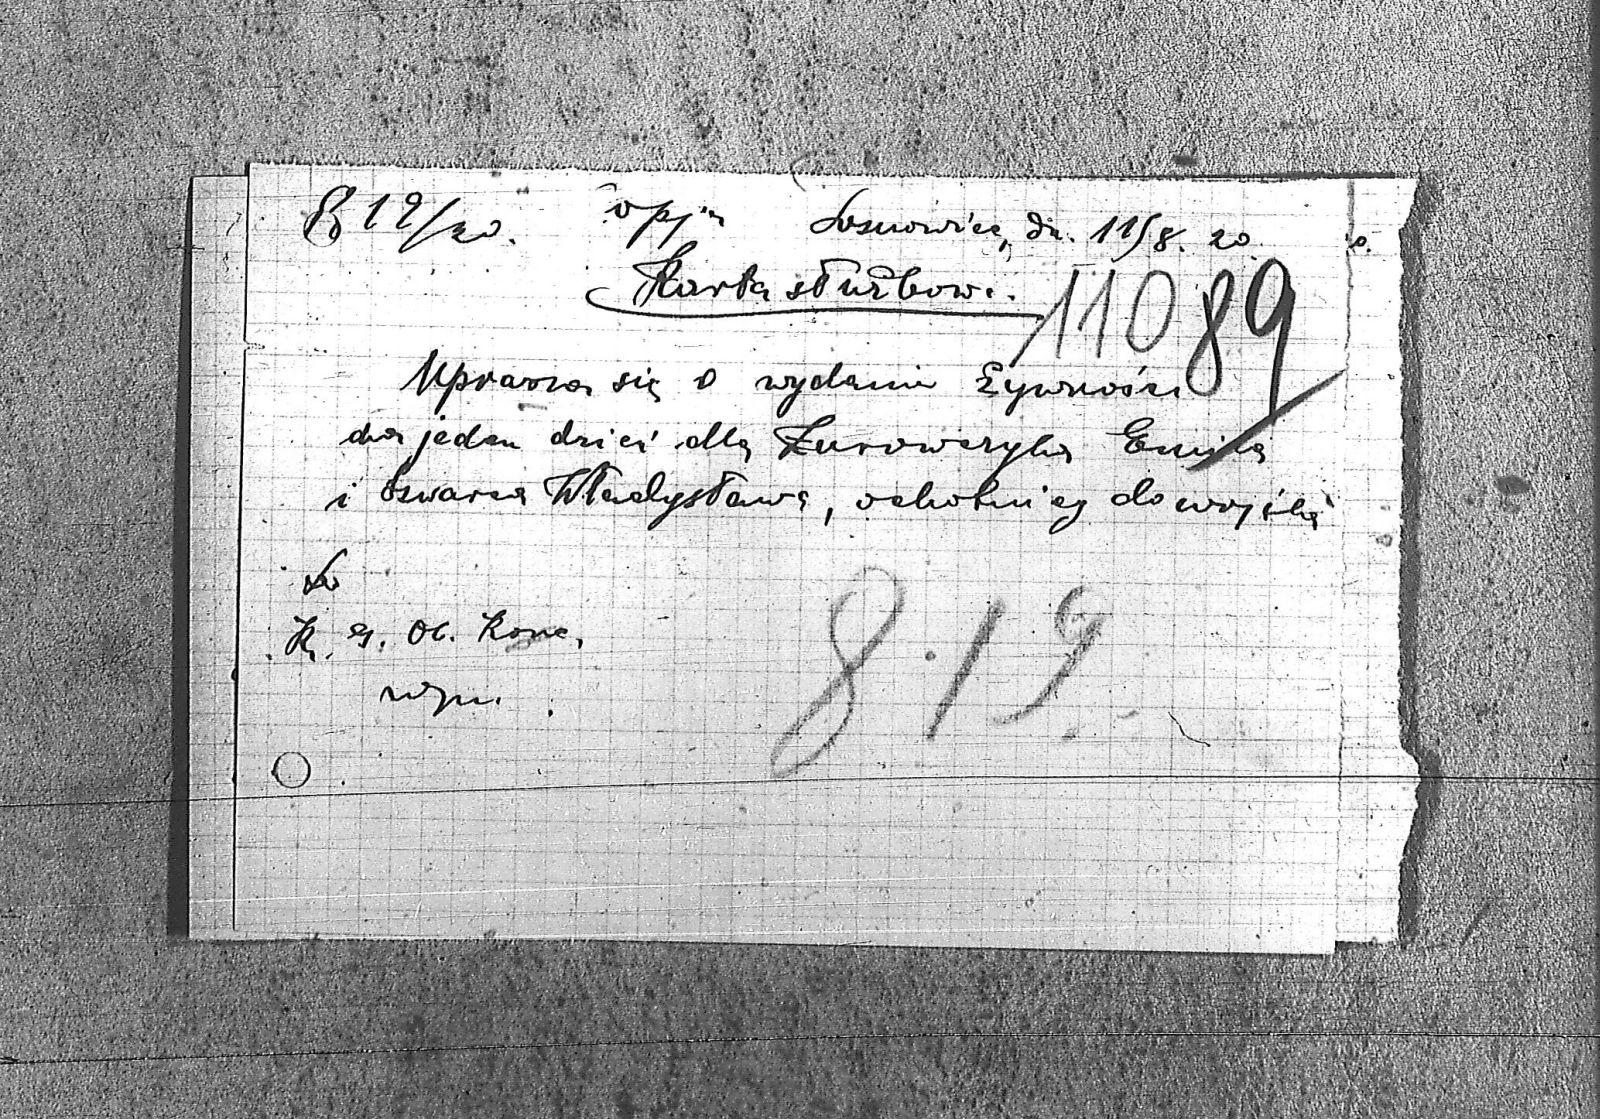 819/20. Kopja Sosnowiec, dn. 11/8. 20
Karta służbowa.
11089
Uprasza się o wydanie żywności
na jeden dzień dla Żurowczyka Emila
i Szwarca Władysława, ochotnicy do wojska
Do
K. G. Ob. Konc.
wym.
819